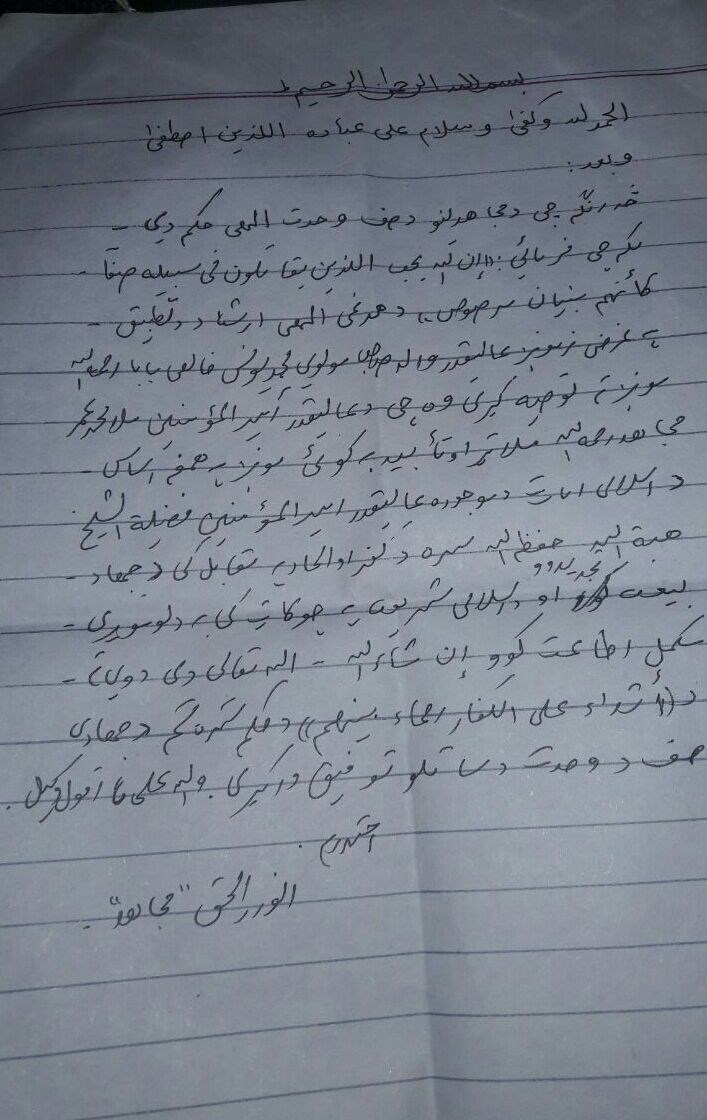 بسم الله الرحمن الرحیم
الحمد لله وکفیٰ وسلام علی عباده اللذین اصطفیٰ
وبعد:
څه رنګه چی د مجاهدینو د صف وحدت الهی حکم دی -
لکه چی فرمائي: ((إن الله یحب اللذین یقاتلون فی سبیله صفا -
کأنهم بنیان مرصوص)) د همدغی الهی ارشاد د تطبیق -
په غرض زمونږ عالیقدر والد صاحب مولوي محمد یونس خالص بابا رحمه الله
مونږ ته توصیه کړی وه چی د عالیقدر أمیر المؤمنین ملا محمد عمر
مجاهد رحمه الله ملاتړ او تأیید به کوئ مونږ په همغه اساس -
د اسلامی امارت د موجوده عالیقدر امیر المؤمنین فضیلة الشیخ
هبة الله حفظه الله سره د کفر او الحاد په مقابل کی د جهاد -
بیعت تجدیدوو او د اسلامی شریعت په چوکاټ کی به د نوموړی -
مکمل اطاعت کوو إن شاء الله - الله تعالی دی دوی ته -
د ((أشداء علی الکفار رحماء بینهم)) د حکم سره سم د جهادی
صف د وحدت د ساتلو توفیق ورکړی. والله علی ما أقول وکیل.
احترام.
انوار الحق "مجاهد".